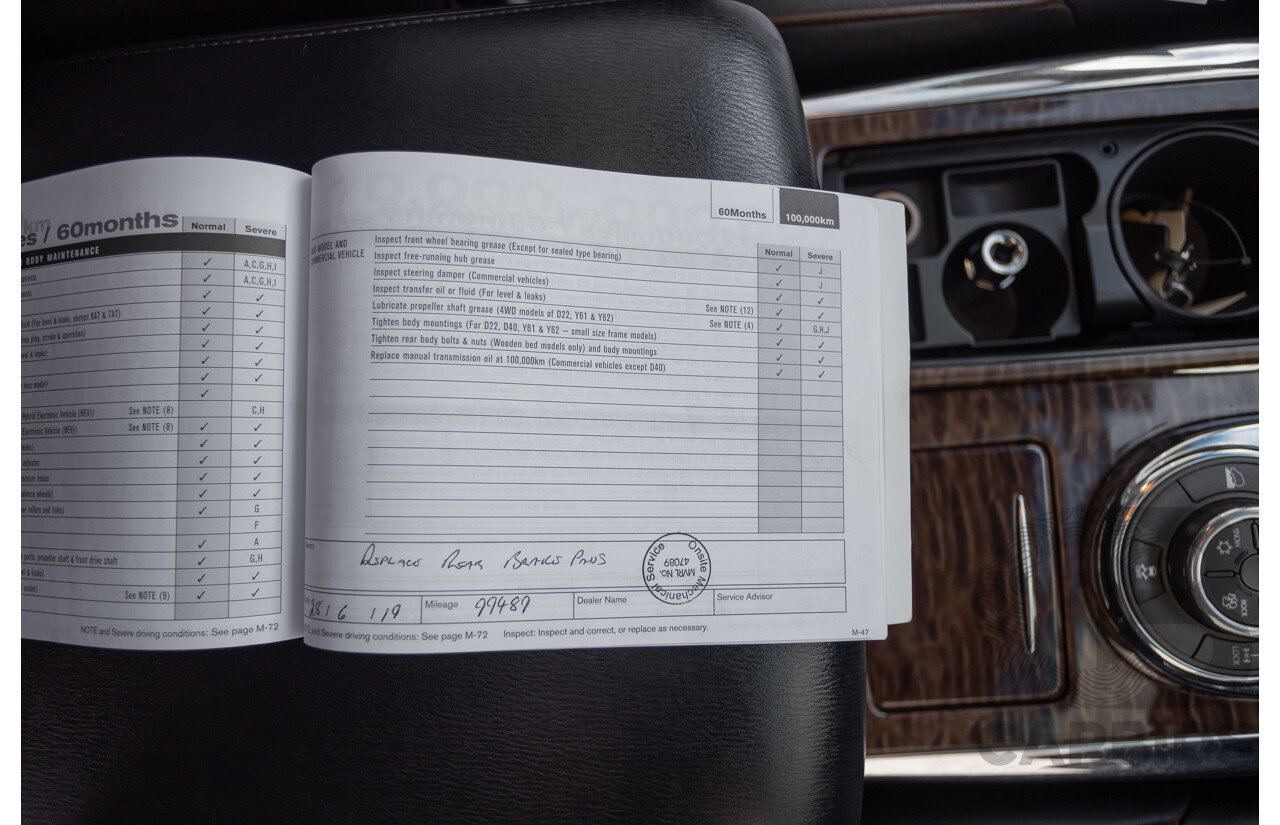 km
es / 60months
Normal Severe
BODY MAINTENANCE
✓ A,C,G,H,I
✓ A,C,G,H,I
✓ ✓
fluid (For level & leaks, except 6AT & 7AT) ✓ ✓
free play, stroke & operation) ✓ ✓
& leaks) ✓ ✓
✓ ✓
less model) ✓ ✓
✓
Hybrid Electronic Vehicle (HEV)) See NOTE (8) C,H
Electronic Vehicle (HEV)) See NOTE (8) ✓ ✓
leaks) ✓ ✓
adjuster ✓ ✓
hoses ✓ ✓
wheels) ✓ ✓
rollers and links) ✓ G
F
✓ A
parts, propeller shaft & front drive shaft ✓ G,H
& leaks) ✓ ✓
See NOTE (9) ✓ ✓
NOTE and Severe driving conditions: See page M-72
60Months 100,000km
Normal Severe
MODEL AND
COMMERCIAL VEHICLE
Inspect front wheel bearing grease (Except for sealed type bearing) ✓ J
Inspect free-running hub grease ✓ J
Inspect steering damper (Commercial vehicles) ✓ ✓
Inspect transfer oil or fluid (For level & leaks) See NOTE (12) ✓ ✓
Lubricate propeller shaft grease (4WD models of D22, Y61 & Y62) See NOTE (4) ✓ G,H,J
Tighten body mountings (For D22, D40, Y61 & Y62 – small size frame models) ✓ ✓
Tighten rear body bolts & nuts (Wooden bed models only) and body mountings ✓ ✓
Replace manual transmission oil at 100,000km (Commercial vehicles except D40) ✓ ✓
REPLACE REAR BRAKE PADS
Onsite Mechanical Service
MVRL No.
47089
6 1 19 Mileage 99489 Dealer Name Service Advisor
and Severe driving conditions: See page M-72 Inspect: Inspect and correct, or replace as necessary.
M-47
SNOW
ROCK
LOCK